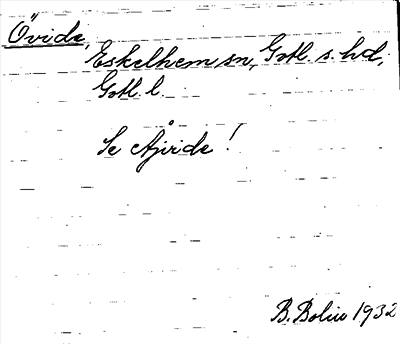 Övide,
Eskelhem sn, Gotl. s. hd,
Gotl. l.
Se Åjvide!
B. Bolin 1932